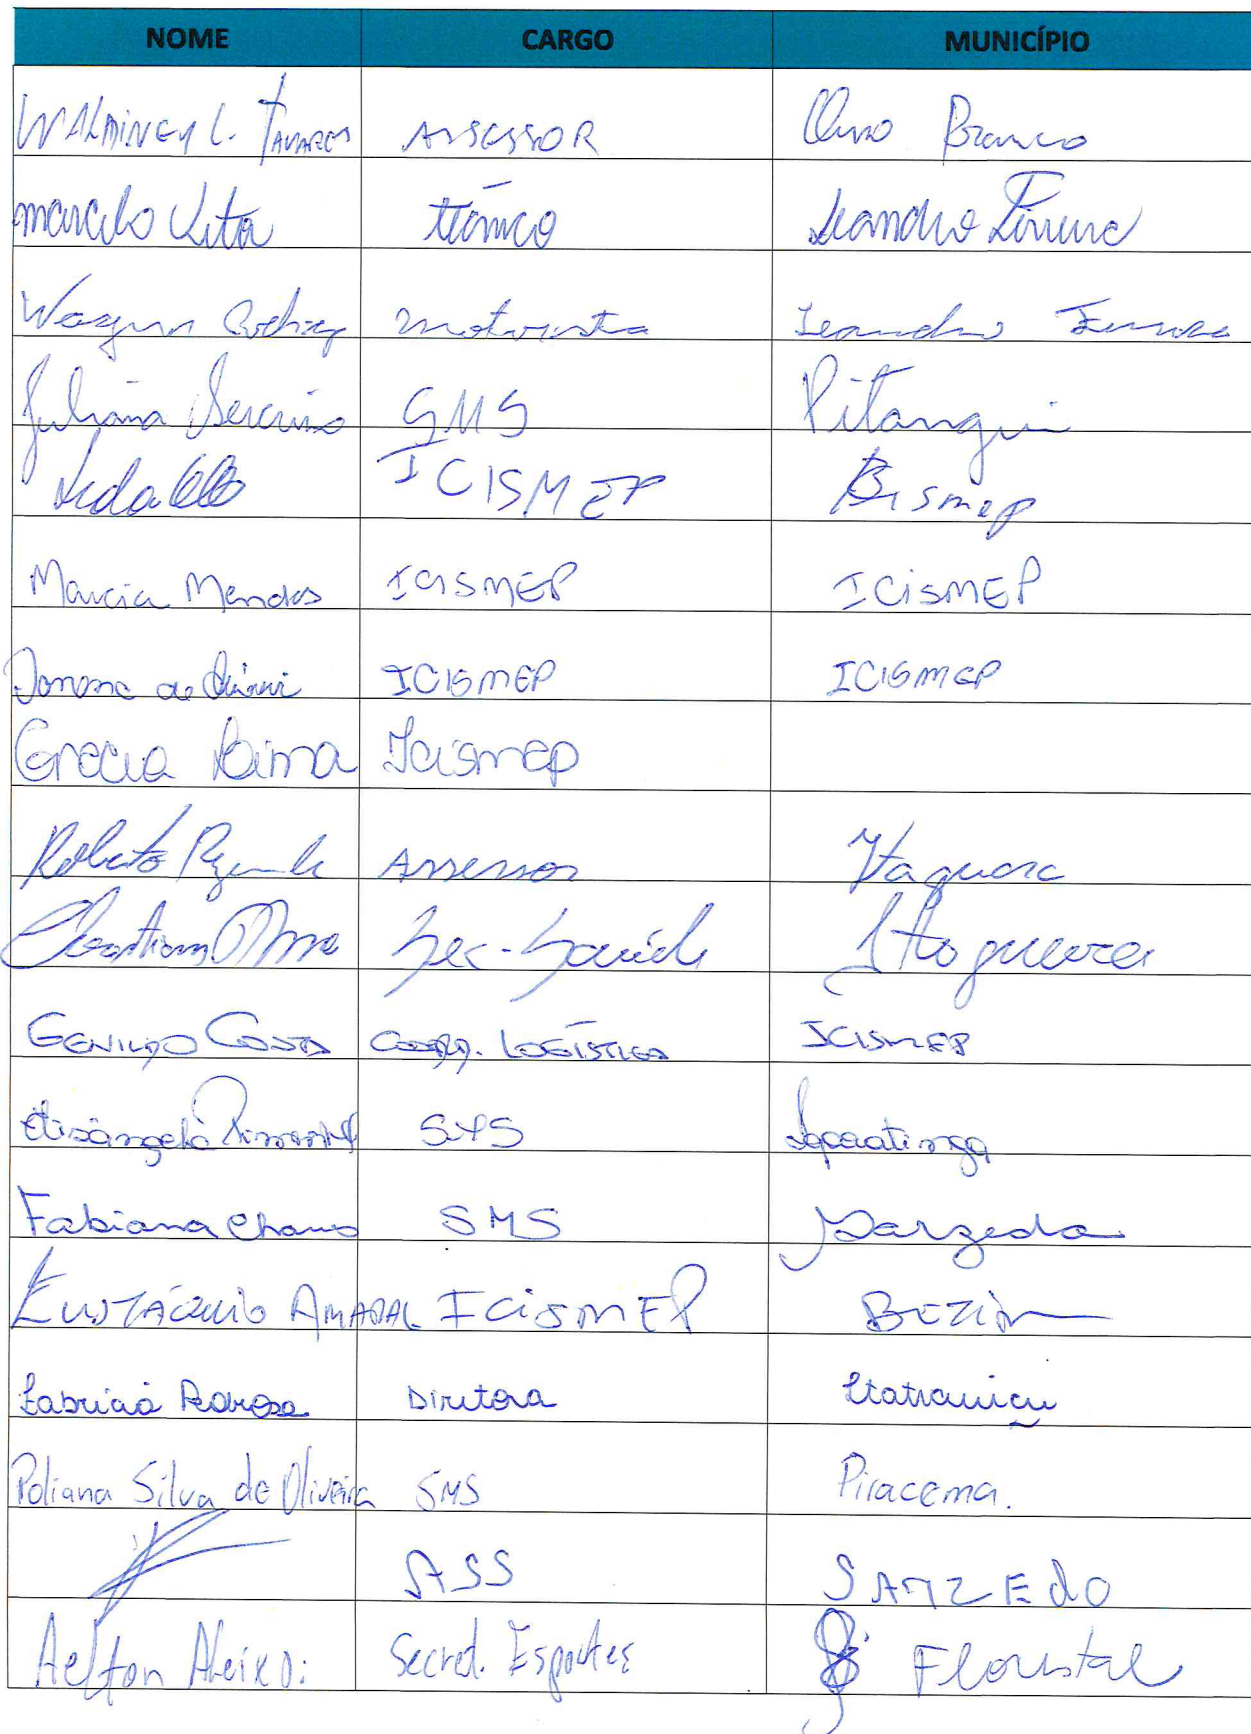 NOME CARGO MUNICÍPIO
WALDINEY L. TAVARES ASSESSOR Ouro Branco
marcelo Lita técnico Leandro Ferreira
Wagner motorista Leandro Ferreira
Juliana SMS Pitangui
Leda ICISMEP Icismep
Marcia Mendes ICISMEP ICisMEP
ICISMEP ICISMEP
Grecia Icismep
Roberto Assessor Itaguara
Sec. Saúde Itaguara
GENILDO COSTA COORD. LOGÍSTICA ICISMEP
Elisângela Pimentel SMS Igaratinga
Fabiana Chaves SMS Sarzedo
EUSTÁQUIO AMARAL ICISMEP BETIM
Fabricia Pedrosa Diretora Itatiaiuçu
Poliana Silva de Oliveira SMS Piracema.
ASS SARZEdO
Aelton Aleixo: Secret. Esportes Florestal